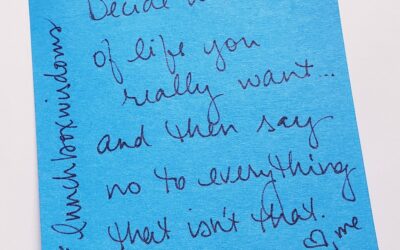 Decide
of life you
really want...
and then say
no to everything
that isn't that.
♡ me
lunchboxwisdoms